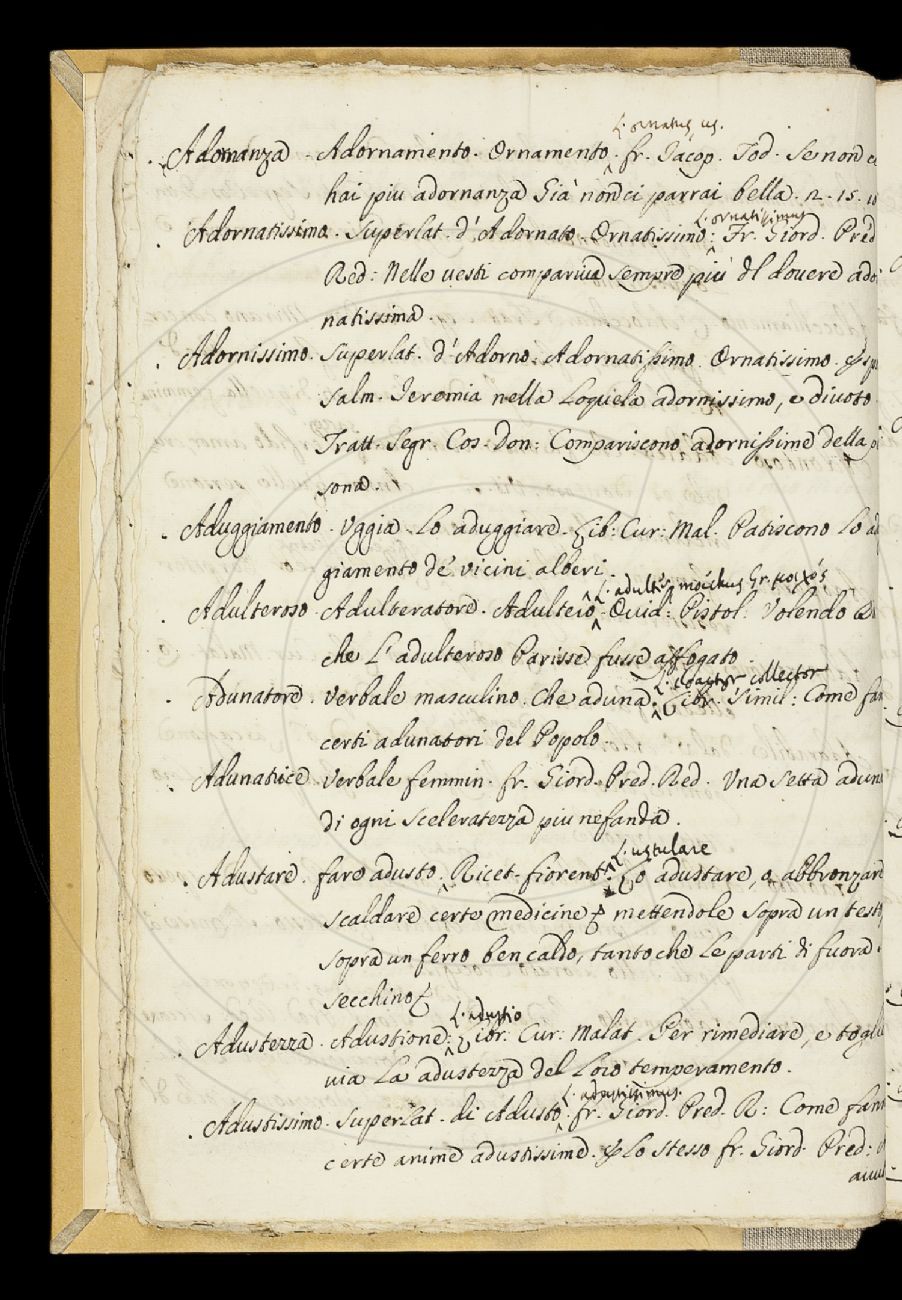 L. ornatus, us.
Adornanza. Adornamento. Ornamento. fr. Jacop. Tod. Se non ci
hai piu adornanza Già non ci parrai bella. 2. 15. 10
L. ornatissimus
Adornatissimo. Superlat. d'Adornato. Ornatissimo: Fr. Giord. Pred
Red: Nelle vesti compariva sempre più del dovere ador
natissima.
Adornissimo. Superlat. d'Adorno. Adornatissimo. Ornatissimo.
Salm. Jeremia nella Loquela adornissimo, e divoto
Tratt. Segr. Cos. Don: Compariscono adornissime della
sona.
Aduggiamento. Uggia. Lo aduggiare. Lib: Cur: Mal. Patiscono lo adug
giamento de' vicini alberi.
L. adulter, moechus Gr. μοιχός
Adulteroso. Adulteratore. Adultero. Ovid: Pistol. Volendo
che L'adulteroso Parisse fusse affogato.
L. coactor collector
Adunatore. Verbale masculino. Che aduna. Libr. Simil: Come fan
certi adunatori del Popolo.
Adunatrice. Verbale femmin. fr. Giord. Pred. Red. Una Setta aduna
di ogni sceleratezza piu nefanda.
L. ustulare
Adustare. fare adusto. Ricet. fiorent. Lo adustare, o abbronzare
scaldare certe medicine mettendole sopra un testo
sopra un ferro ben caldo, tanto che Le parti di fuora
secchino
L. adustio
Adustezza. Adustione: Libr. Cur: Malat. Per rimediare, e toglie
via La adustezza del Loro temperamento.
L. adustissimus
Adustissimo. Superlat. di Adusto. fr. Giord. Pred. R: Come fanno
certe anime adustissime. Lo stesso fr. Giord. Pred: